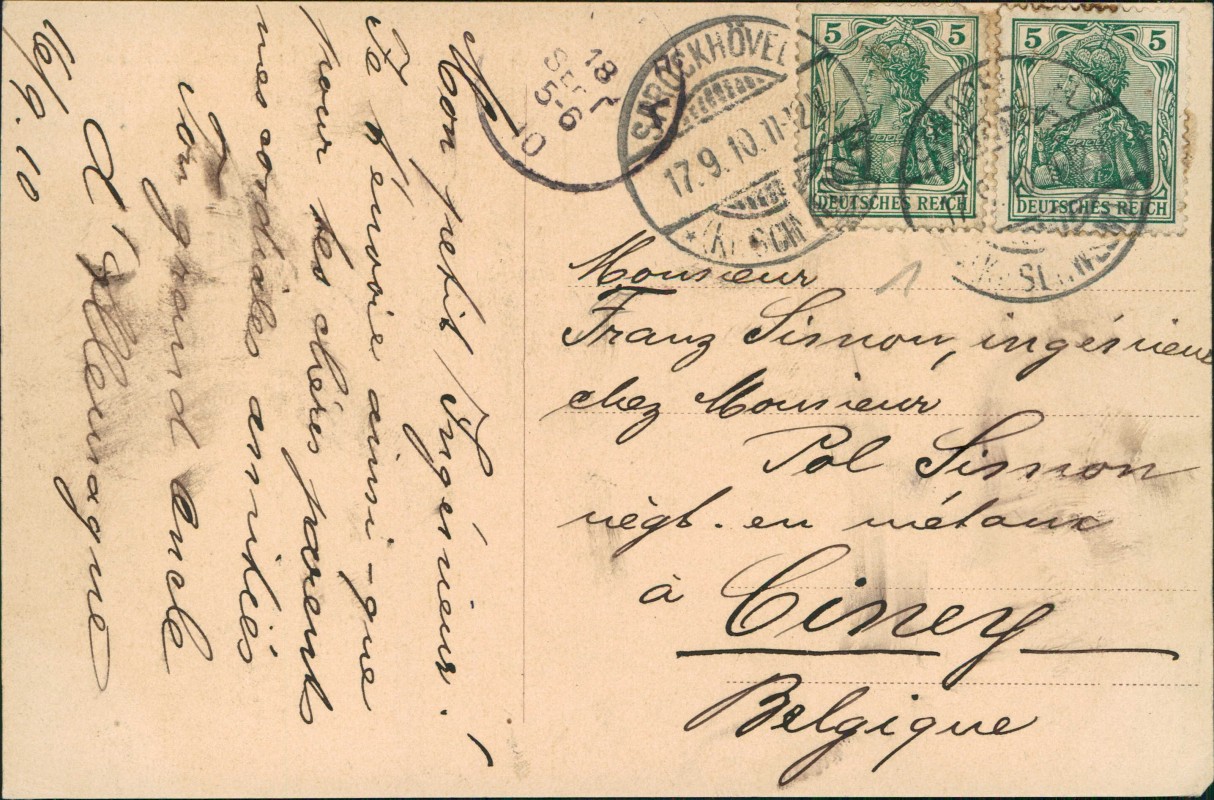 Mon petit Ingénieur.
Je t'envoie ainsi-que
pour tes chéris parents
mes cordiales amitiés
Ton grand oncle
d'Allemagne
16/9.10
18
SEPT
5-6
10
17.9.10.11-12
5 5
DEUTSCHES REICH
5 5
DEUTSCHES REICH
1
Monsieur
Franz Simon, ingénieur
chez Monsieur
Pol Simon
négt. en métaux
à Ciney
Belgique